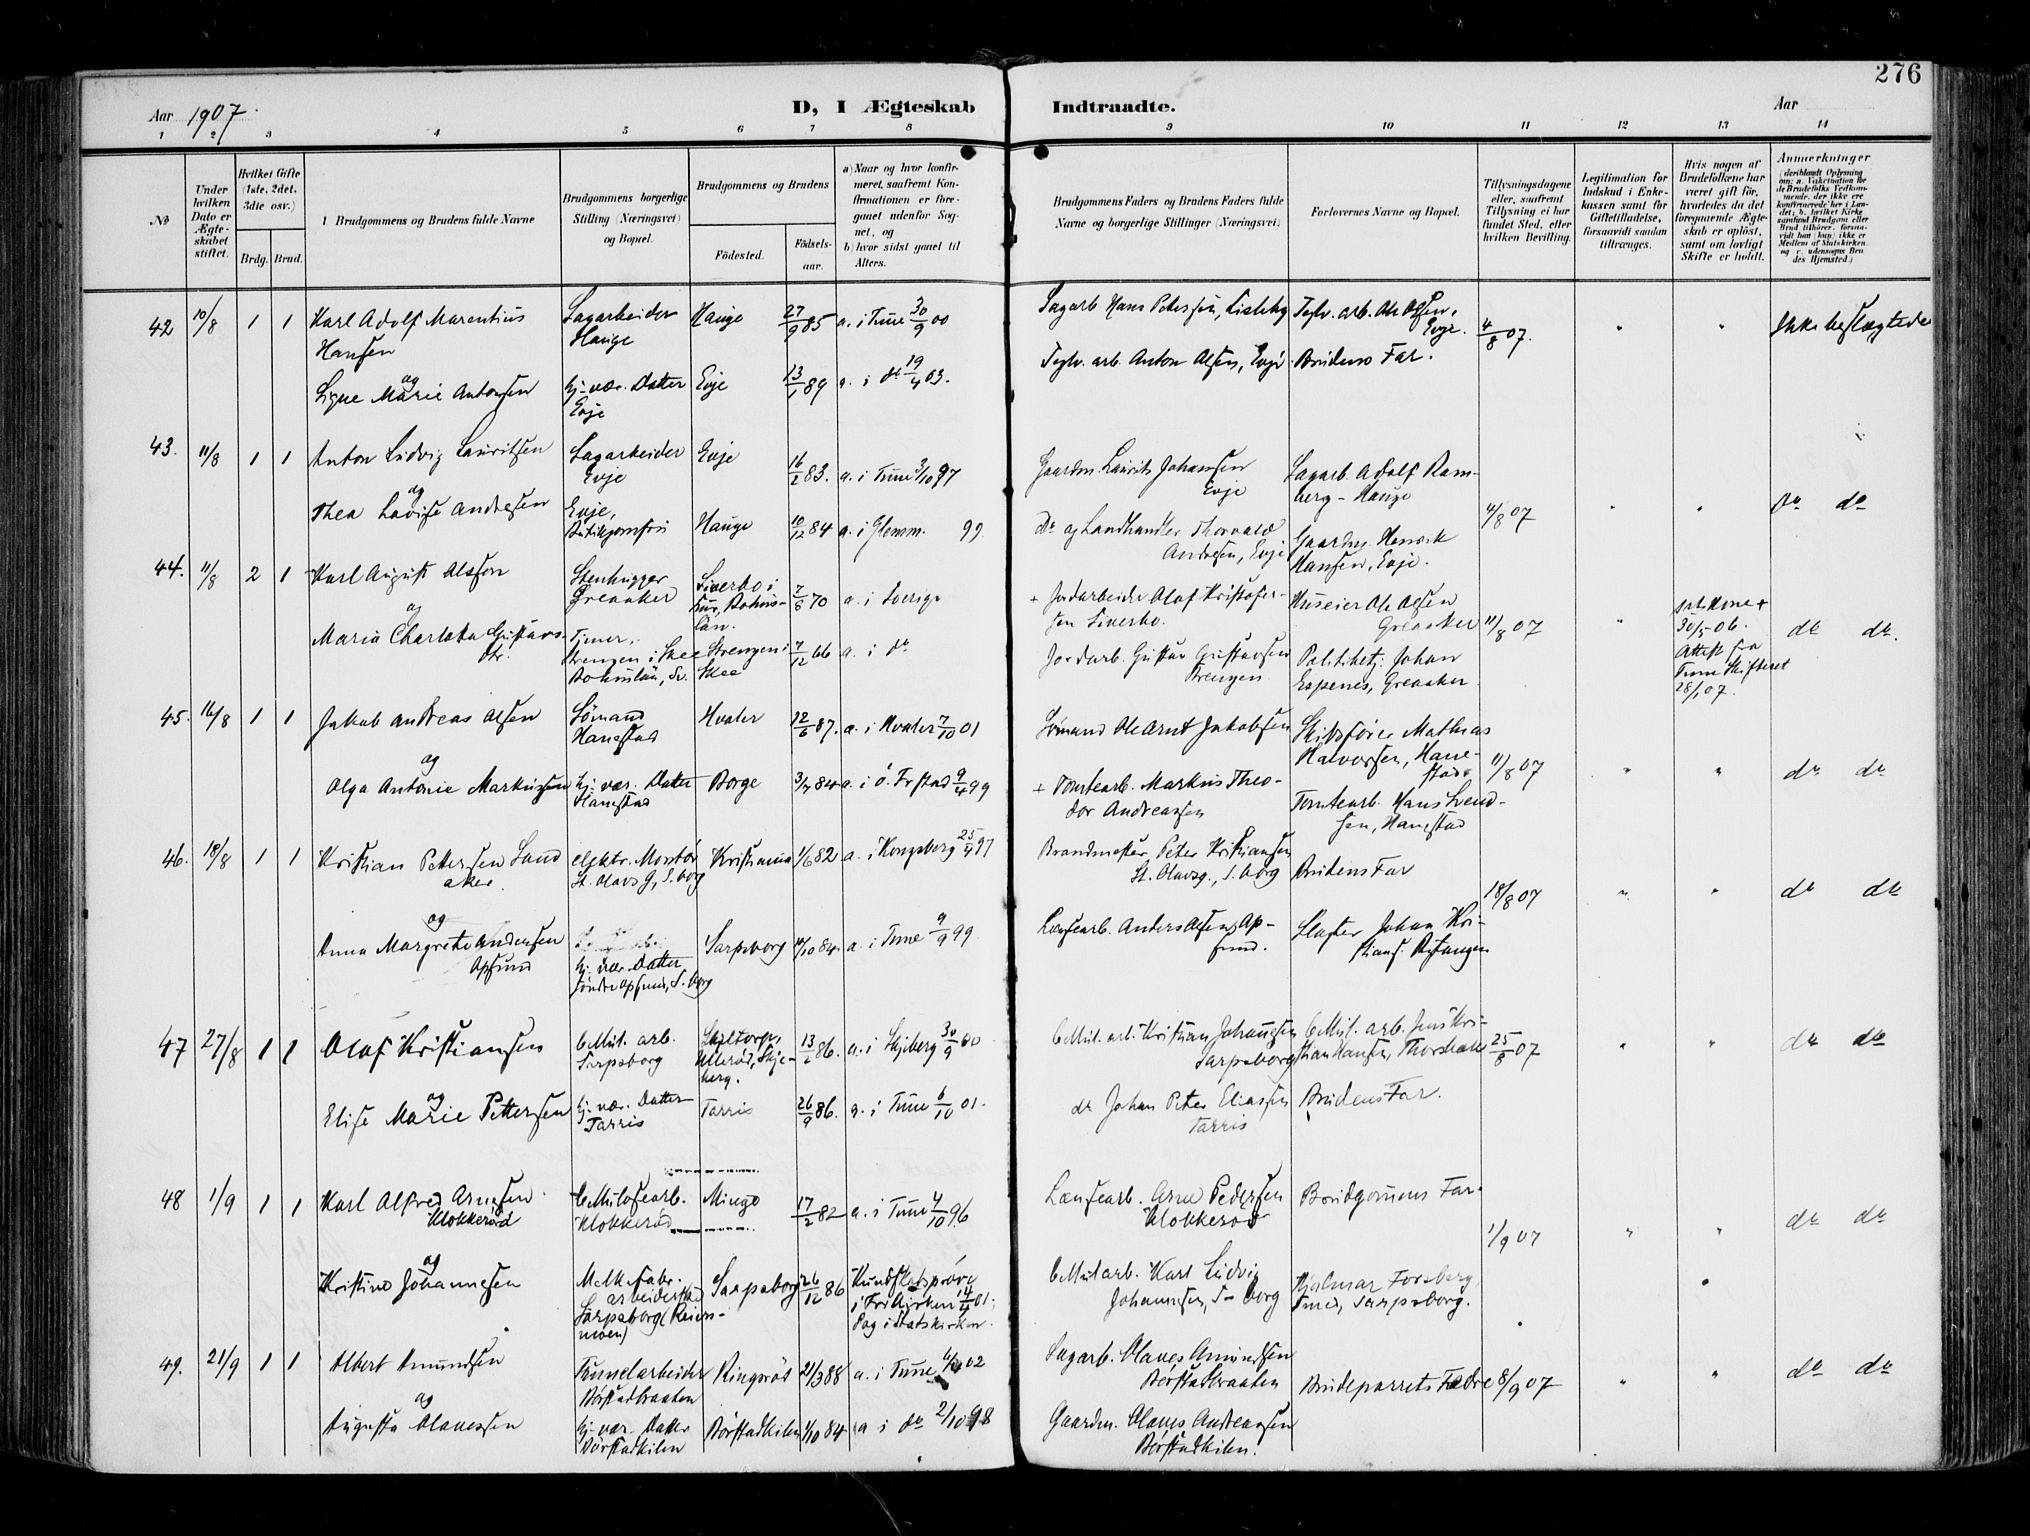 276
Aar 1907.
D, I Ægteskab Indtraadte.
Aar
1 2 3 4 5 6 7 8 9 10 11 12 13 14
No
Under hvilken Dato er Ægteskabet stiftet.
Hvilket Gifte (1ste, 2det, 3die osv.)
Brdg. Brud.
Brudgommens og Brudens fulde Navne
Brudgommens borgerlige Stilling (Næringsvei) og Bopæl.
Brudgommens og Brudens
Födested. Födselsaar.
a) Naar og hvor konfirmeret, saafremt Konfirmationen er foregaaet udenför Sognet, og
b) hvor sidst gaaet til Alters.
Brudgommens Faders og Brudens Faders fulde Navne og borgerlige Stillinger (Næringsvei)
Forlovernes Navne og Bopæl.
Tillysningsdagene eller, saafremt Tillysning ei har fundet Sted, efter hvilken Bevilling.
Legitimation for Indskud i Enkekassen samt for Giftetilladelse, forsaavidt saadan tiltrænges.
Hvis nogen af Brudefolkene har været gift för, hvorledes da det foregaaende Ægteskab er oplöst, samt om lovligt Skifte er holdt.
Anmærkninger
42 10/8 1 1 Karl Adolf Marentius Hansen Sagarbeider Hauge Hauge 27/9 85 a. i Tune 30/9 00
Sagarb. Hans Petersen, Teglv. arb. Ole Olsen, Evje. 4/8 07. Ikke beslægtede
og Signe Marie Antonsen hj. vær. Datter Evje Evje 13/1 89 a. i do 19/4 03.
Teglv. arb. Anton Olsen, Evje Brudens Far.
43. 11/8 1 1 Anton Ludvig Lauritsen Sagarbeider Evje Evje 16/2 83. a. i Tune 3/10 97
Gaardm. Laurits Johansen Evje Sagarb. Adolf Ramberg - Hauge 4/8 07 do do
og Thea Lovise Andresen Evje, Butikjomfru Hauge 10/12 84 a. i Glemm. 99
Do og Landhandler Thorvald Andresen, Evje Gaardm. Henrik Hansen, Evje.
44. 11/8 2 1 Karl August Olsson Stenhugger Greaaker 2/8 70 a. i Sverige
+ Jordarbeider Olaf Kristofersen Museier Ole Olsen Greaaker 11/8 07
1st Kone + 30/5 06. Attest fra Tune Skifteret 28/1 07. do do.
og Maria Charlotta Gustavsdtr. Strengen i Skee Bohuslän, Sv. Strengen i Skee 7/12 66 a. i do
Jordarb. Gustav Gustavsen Strengen Politibetj. Johan Espenes, Greaaker
45. 16/8 1 1 Jakob Andreas Olsen Sömand Hanestad Hvaler 12/6 87. a. i Hvaler 7/10 01
Sömand Ole Arnt Jakobsen Skibsförer Mathias Halvorsen, Hanestad 11/8 07 do do
og Olga Antonie Markussen hj. vær. Datter Hanestad Borge 3/7 84 a. i ö. Frstad 9/4 99
+ Tomtearb. Markus Theodor Andreassen Tomtearb. Hans Svendsen, Hanestad
46. 18/8 1 1 Kristian Pettersen Sandaker. elektr. Montör St. Olavs G, S.borg Kristiania 1/6 82 a. i Kongsberg 25/4 97
Brandmester Peter Kristiansen St. Olavsg., S.borg Brudens Far 18/8 07 do do
og Anna Margrete Andersen Opsund hj. vær. Datter söndre Opsund, S.borg Sarpsborg 14/10 84. a. i Tune 9/9 99.
Lænsearb. Anders Olsen Opsund. Slagter Johan Kristians.
47 27/8 1 1 Olaf Kristiansen Cellul. arb. Sarpsborg Ullerød, Skjeberg. 13/2 86. a. i Skjeberg 30/9 00
Cellul. arb. Kristian Johansen Sarpsborg Cellul. arb. Jens Kristian Hansen, 25/8 07 do do
og Elise Marie Pettersen hj. vær. Datter Tarris Tarris 26/9 86. a. i Tune 6/10 01.
do Johan Peter Eliassen Tarris Brudens Far.
48 1/9 1 1 Karl Alfred Arnesen Klokkeröd Cellulosearb. Klokkeröd Mingo 17/2 82 a. i Tune 4/10 96
Lænsearb. Arne Pedersen Klokkeröd Brudgommens Far. 1/9 07 do do
og Kristine Johannesen Melkefabr. arbeiderske Sarpsborg Sarpsborg 26/12 86 Kundskabspröve i Frikirken 14/4 01; Dag i Statskirken.
Cellularb. Karl Ludvig Johannesen, S-borg Hjalmar Forsberg Tune, Sarpsborg.
49. 21/9 1 1 Albert Amundsen Tunnelarbeider Börstadbraaten Ringsrös 21/3 88 a. i Tune 02
Sagarb. Olaves Amundsen Börstadbraaten Brudeparrets Fædre 8/9 07 do do
og Augusta Olavessen hj. vær. Datter Börstadkilen Börstadkilen 1/10 84 a i do 2/10 98
Gaardm. Olaves Andreassen Börstadkilen.